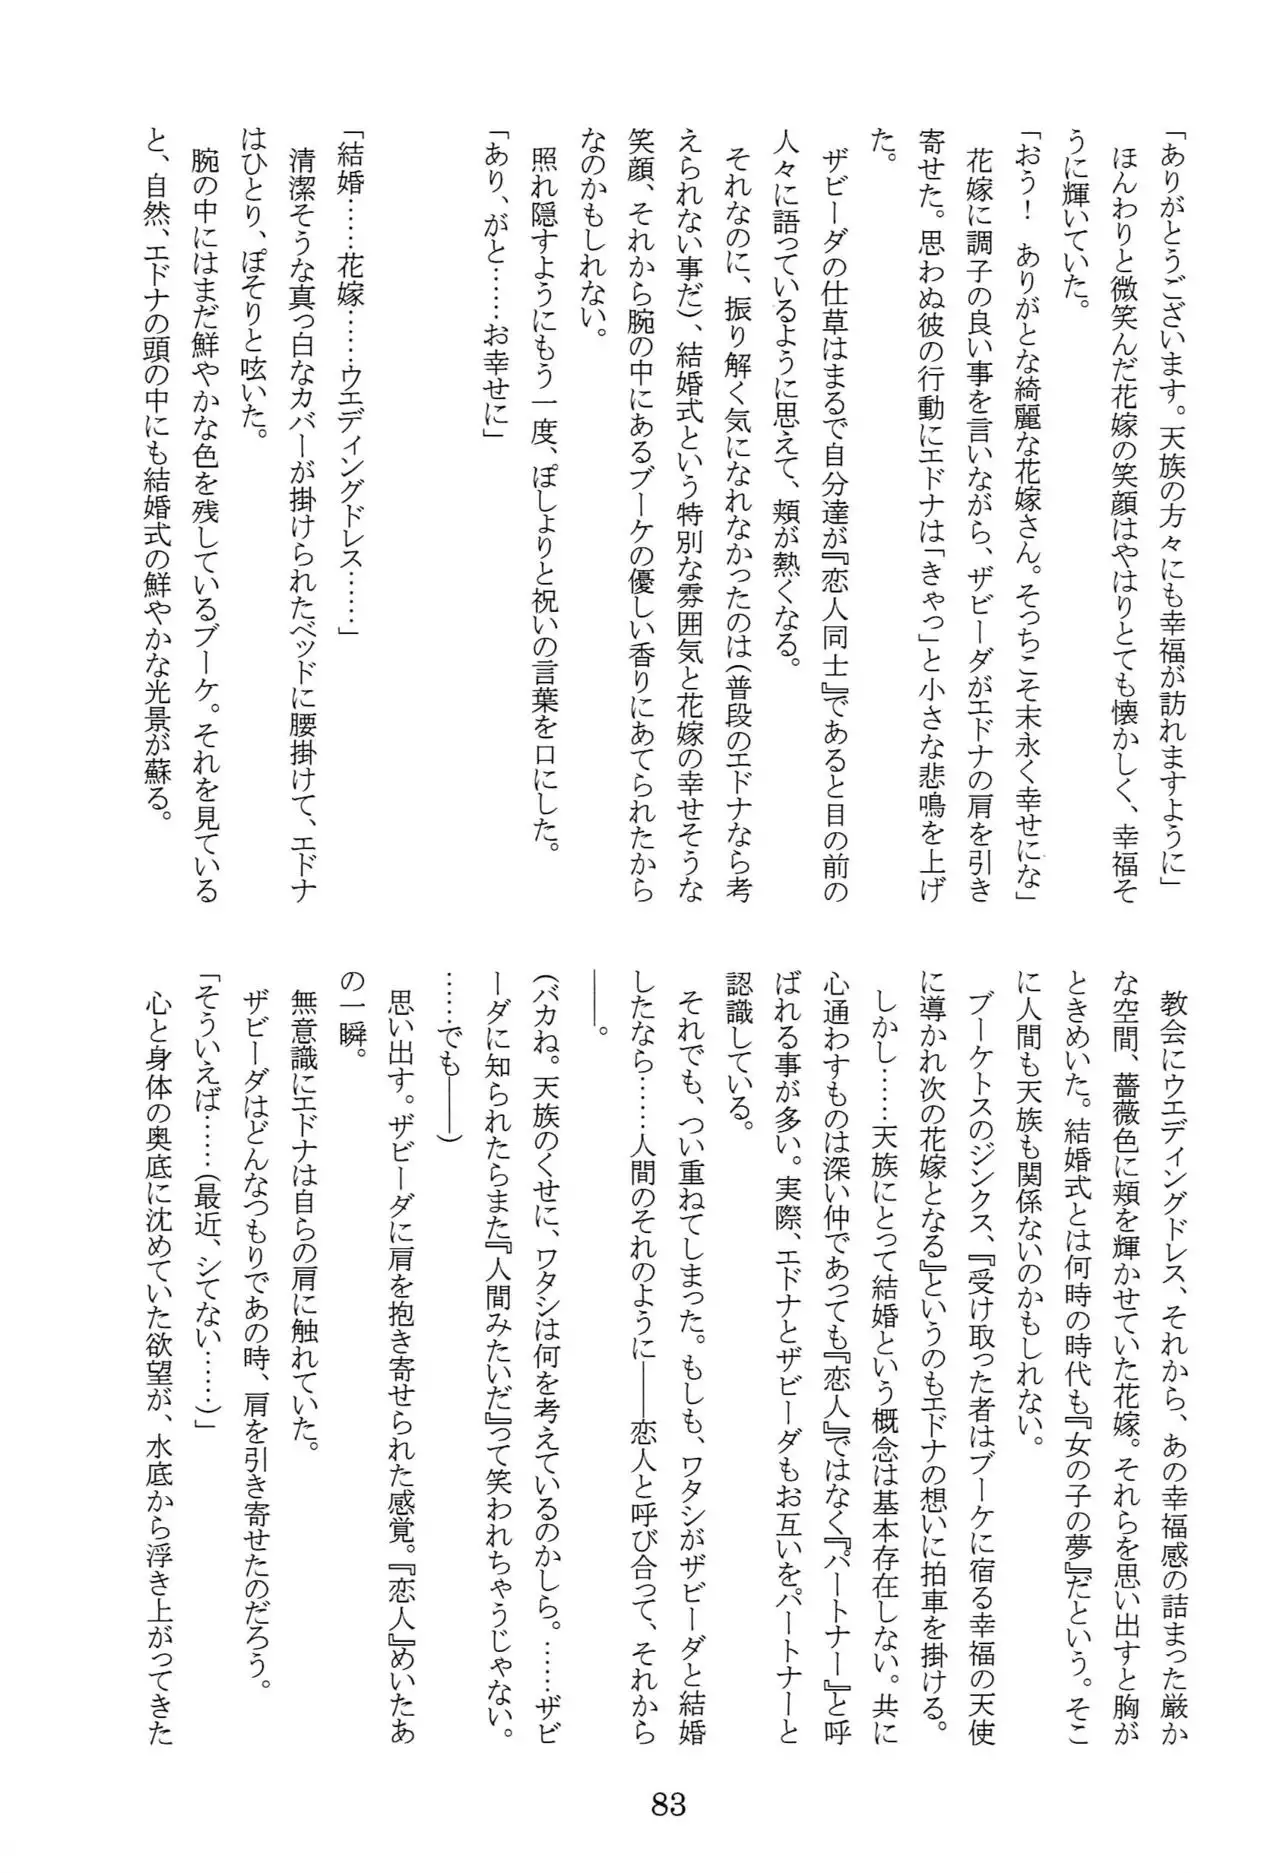 「ありがとうございます。天族の方々にも幸福が訪れますように」
ほんわりと微笑んだ花嫁の笑顔はやはりとても懐かしく、幸福そ
うに輝いていた。
「おう！　ありがとな綺麗な花嫁さん。そっちこそ末永く幸せにな」
花嫁に調子の良い事を言いながら、ザビーダがエドナの肩を引き
寄せた。思わぬ彼の行動にエドナは「きゃっ」と小さな悲鳴を上げ
た。
ザビーダの仕草はまるで自分達が『恋人同士』であると目の前の
人々に語っているように思えて、頬が熱くなる。
それなのに、振り解く気になれなかったのは(普段のエドナなら考
えられない事だ)、結婚式という特別な雰囲気と花嫁の幸せそうな
笑顔、それから腕の中にあるブーケの優しい香りにあてられたから
なのかもしれない。
照れ隠すようにもう一度、ぽしょりと祝いの言葉を口にした。
「あり、がと……お幸せに」
「結婚……花嫁……ウエディングドレス……」
清潔そうな真っ白なカバーが掛けられたベッドに腰掛けて、エドナ
はひとり、ぽそりと呟いた。
腕の中にはまだ鮮やかな色を残しているブーケ。それを見ている
と、自然、エドナの頭の中にも結婚式の鮮やかな光景が蘇る。
教会にウエディングドレス、それから、あの幸福感の詰まった厳か
な空間、薔薇色に頬を輝かせていた花嫁。それらを思い出すと胸が
ときめいた。結婚式とは何時の時代も『女の子の夢』だという。そこ
に人間も天族も関係ないのかもしれない。
ブーケトスのジンクス、『受け取った者はブーケに宿る幸福の天使
に導かれ次の花嫁となる』というのもエドナの想いに拍車を掛ける。
しかし……天族にとって結婚という概念は基本存在しない。共に
心通わすものは深い仲であっても『恋人』ではなく『パートナー』と呼
ばれる事が多い。実際、エドナとザビーダもお互いをパートナーと
認識している。
それでも、つい重ねてしまった。もしも、ワタシがザビーダと結婚
したなら……人間のそれのように――恋人と呼び合って、それから
――。
(バカね。天族のくせに、ワタシは何を考えているのかしら。……ザビ
ーダに知られたらまた『人間みたいだ』って笑われちゃうじゃない。
……でも――)
思い出す。ザビーダに肩を抱き寄せられた感覚。『恋人』めいたあ
の一瞬。
無意識にエドナは自らの肩に触れていた。
ザビーダはどんなつもりであの時、肩を引き寄せたのだろう。
「そういえば……(最近、シてない……)」
心と身体の奥底に沈めていた欲望が、水底から浮き上がってきた
83